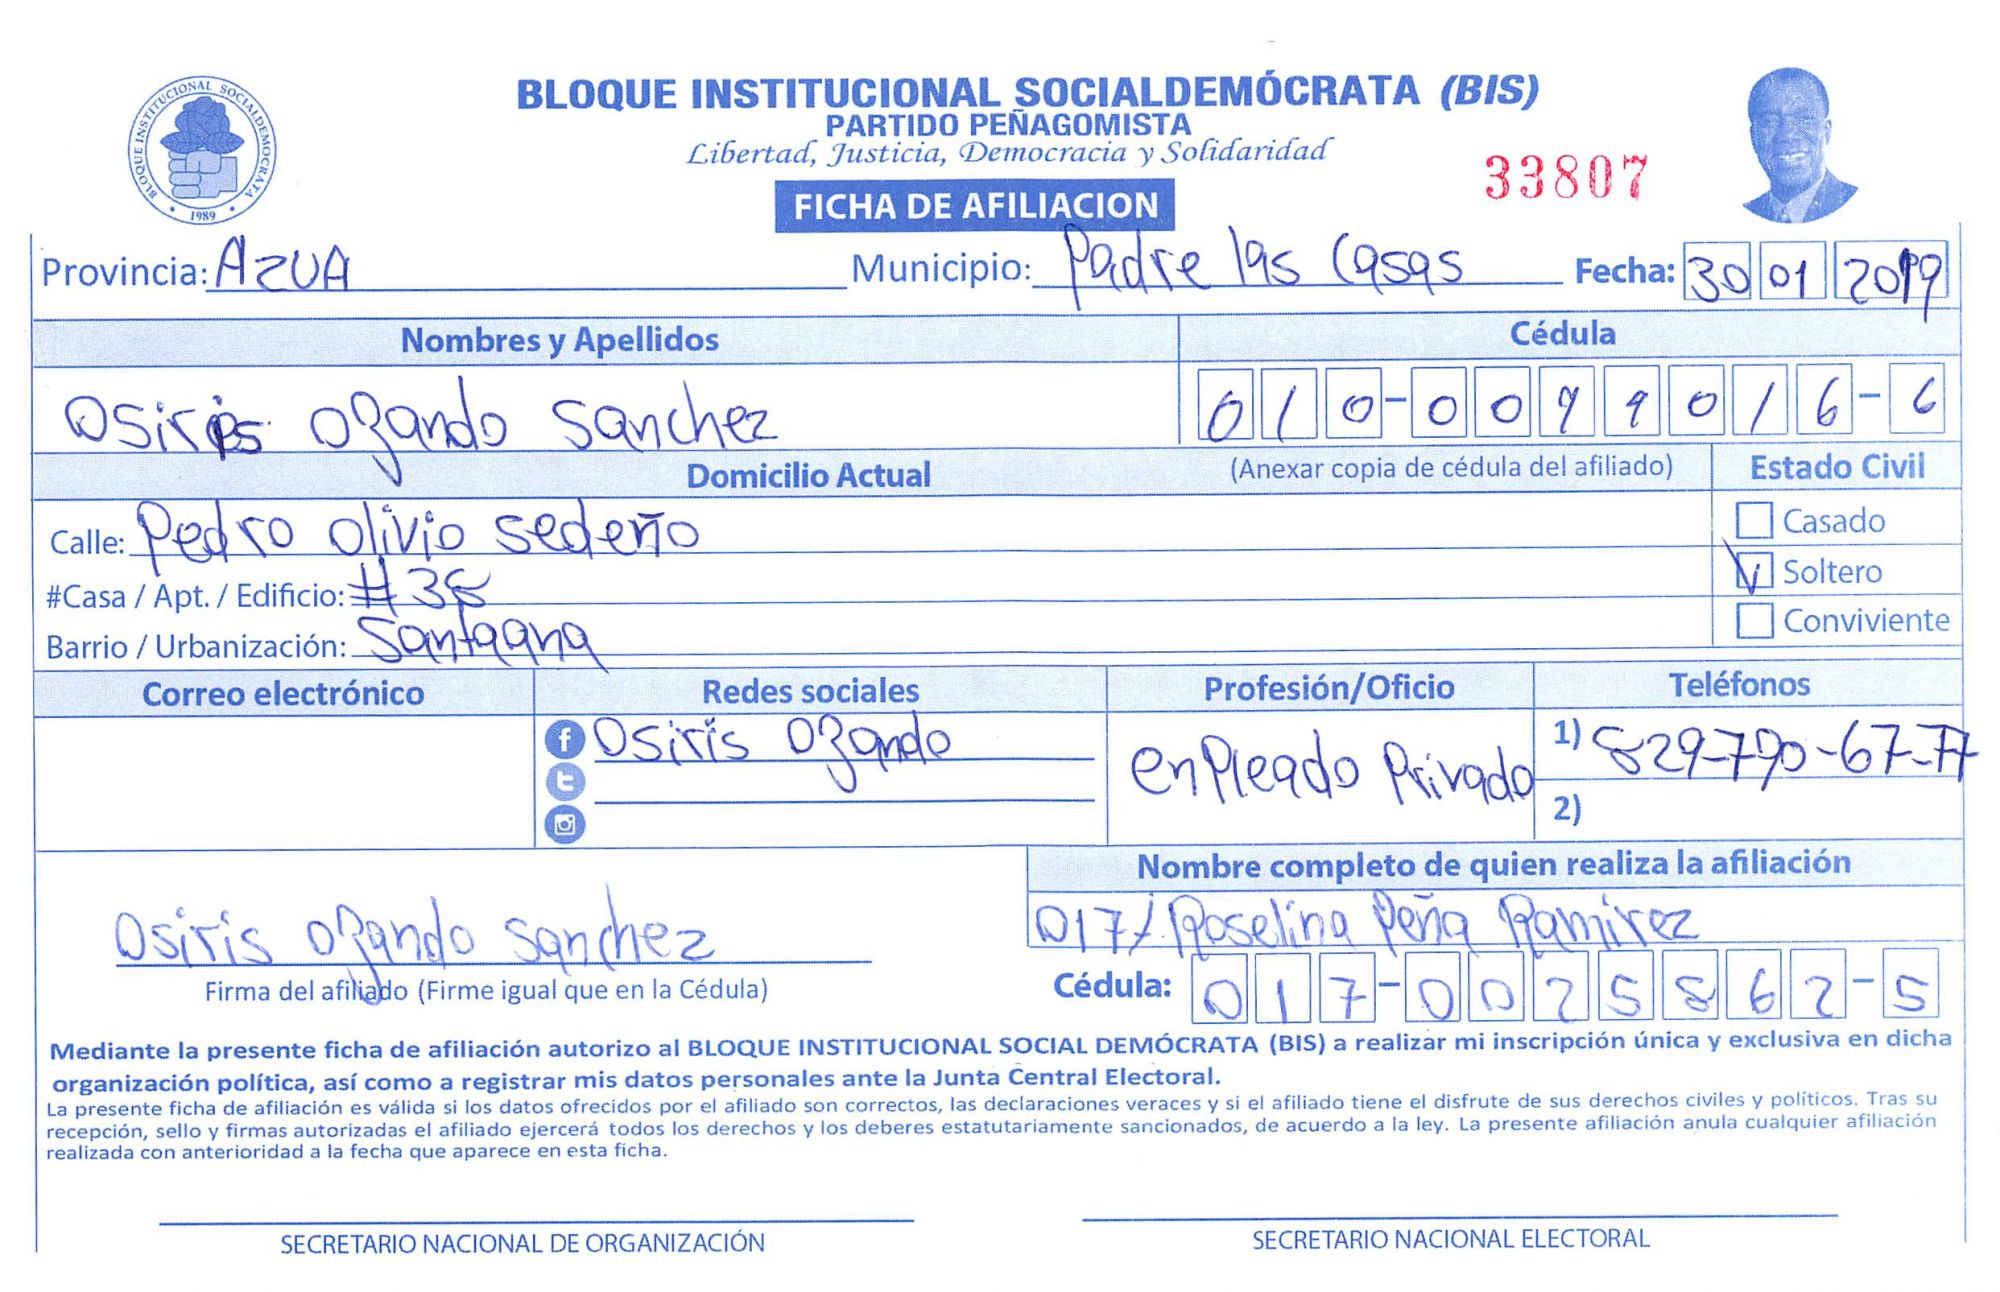 BLOQUE INSTITUCIONAL SOCIALDEMOCRATA
1989
BLOQUE INSTITUCIONAL SOCIALDEMÓCRATA (BIS)
PARTIDO PEÑAGOMISTA
Libertad, Justicia, Democracia y Solidaridad
33807
FICHA DE AFILIACION
Provincia: AZUA Municipio: Padre las Casas Fecha: 30 01 2019
Nombres y Apellidos Cédula
Osiris Ozando Sanchez 010-0099016-6
Domicilio Actual (Anexar copia de cédula del afiliado) Estado Civil
Calle: Pedro Olivio Sedeño Casado
#Casa / Apt. / Edificio: #38 Soltero
Barrio / Urbanización: Santaana Conviviente
Correo electrónico Redes sociales Profesión/Oficio Teléfonos
Osiris Ozando enpleado Privado 1) 829-790-67-77
2)
Nombre completo de quien realiza la afiliación
017/ Roselina Peña Ramirez
Osiris Ozando Sanchez
Firma del afiliado (Firme igual que en la Cédula) Cédula: 017-0025862-5
Mediante la presente ficha de afiliación autorizo al BLOQUE INSTITUCIONAL SOCIAL DEMÓCRATA (BIS) a realizar mi inscripción única y exclusiva en dicha
organización política, así como a registrar mis datos personales ante la Junta Central Electoral.
La presente ficha de afiliación es válida si los datos ofrecidos por el afiliado son correctos, las declaraciones veraces y si el afiliado tiene el disfrute de sus derechos civiles y políticos. Tras su
recepción, sello y firmas autorizadas el afiliado ejercerá todos los derechos y los deberes estatutariamente sancionados, de acuerdo a la ley. La presente afiliación anula cualquier afiliación
realizada con anterioridad a la fecha que aparece en esta ficha.
SECRETARIO NACIONAL DE ORGANIZACIÓN SECRETARIO NACIONAL ELECTORAL